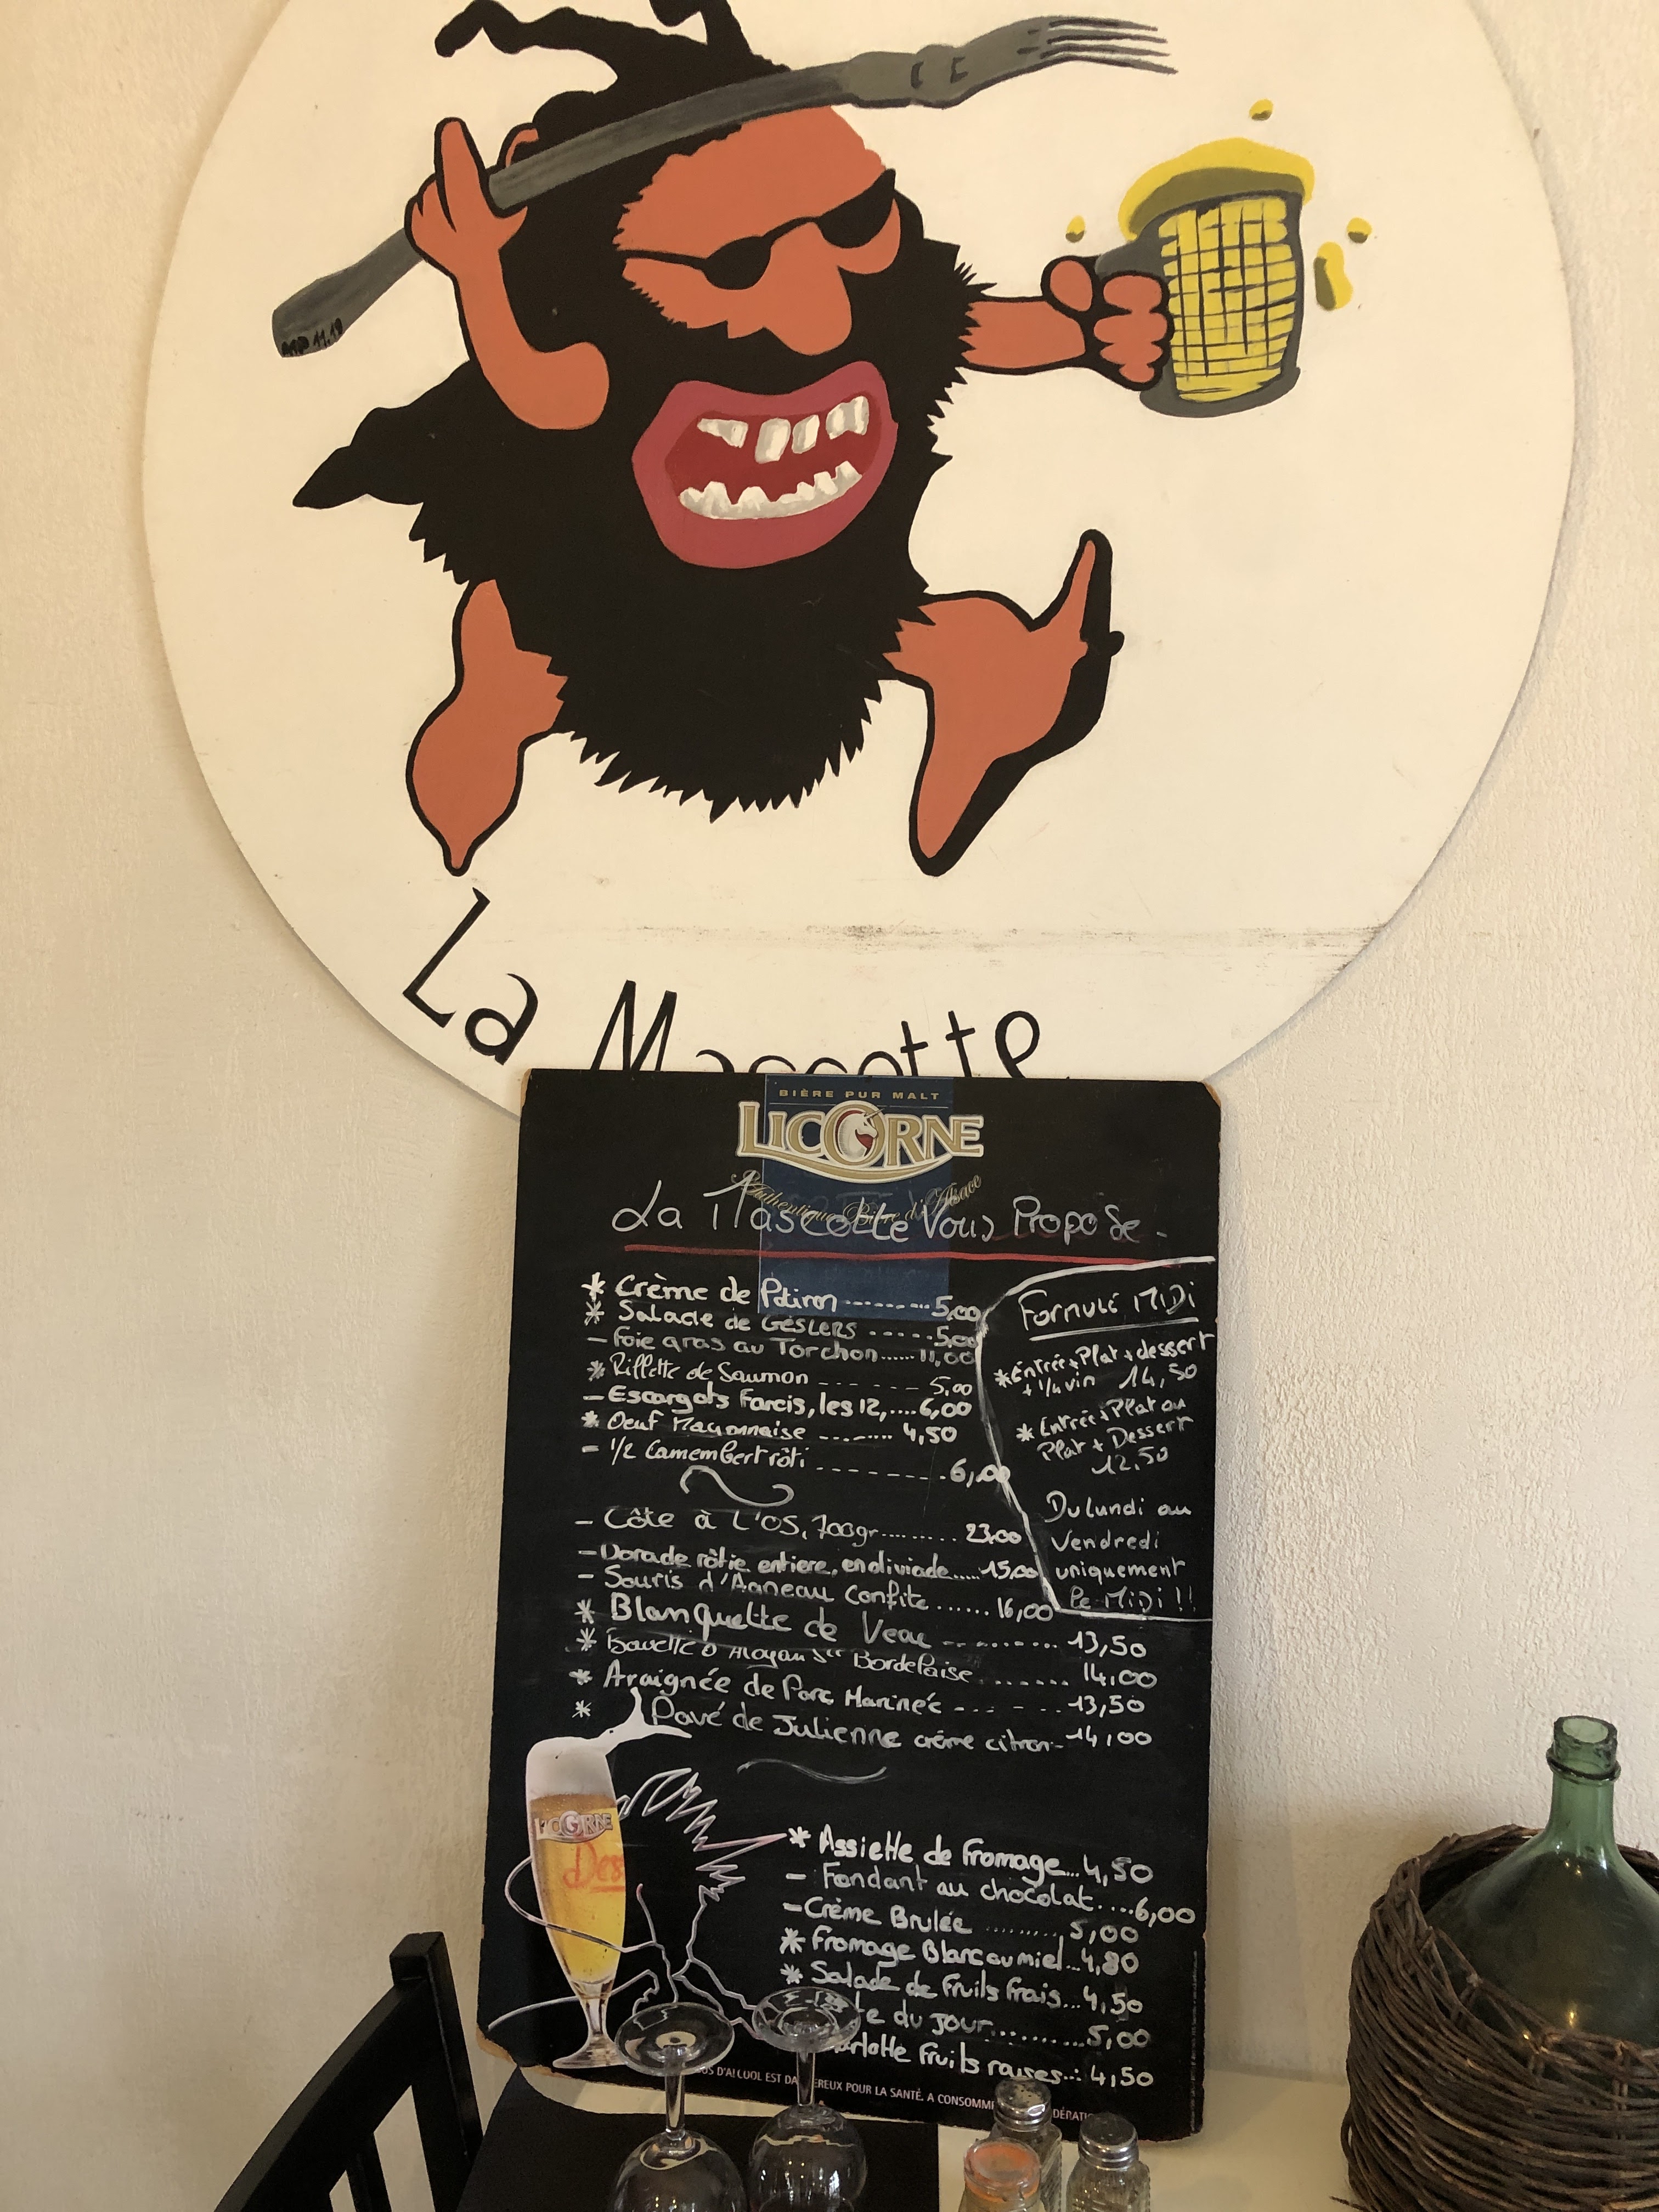 La Mascotte
BIÈRE PUR MALT
LICORNE
Authentique Bière d'Alsace
La Mascotte Vous Propose -
* Crème de Potiron -------- 5,00
* Salade de Gésiers ----- 5,00
- Foie gras au Torchon...... 11,00
* Rillette de Saumon ------- 5,00
- Escargots Farcis, les 12,.... 6,00
* Oeuf Mayonnaise -------- 4,50
- 1/2 Camembert rôti -------- 6,00
- Côte à L'OS, 700gr......... 23,00
- Dorade rôtie entiere, endiviade..... 15,00
- Souris d'Agneau Confite...... 16,00
* Blanquette de Veau --------- 13,50
* Bavette d'Aloyau Sce Bordelaise....... 14,00
* Araignée de Porc Marinée ------ 13,50
* Pavé de Julienne crème citron-- 14,00
Formule MiDi
* Entrée + Plat + dessert
+ 1/4 vin 14,50
* Entrée + Plat ou
Plat + Dessert
12,50
Du lundi au
Vendredi
uniquement
le MiDi !!
LICORNE
Des
* Assiette de fromage... 4,50
- Fondant au chocolat.... 6,00
- Crème Brulée ........., 5,00
* Fromage Blanc au miel... 4,80
* Salade de Fruits frais... 4,50
te du jour............ 5,00
arlotte Fruits rouges... 4,50
D'ALCOOL EST DANGEREUX POUR LA SANTÉ. A CONSOMME